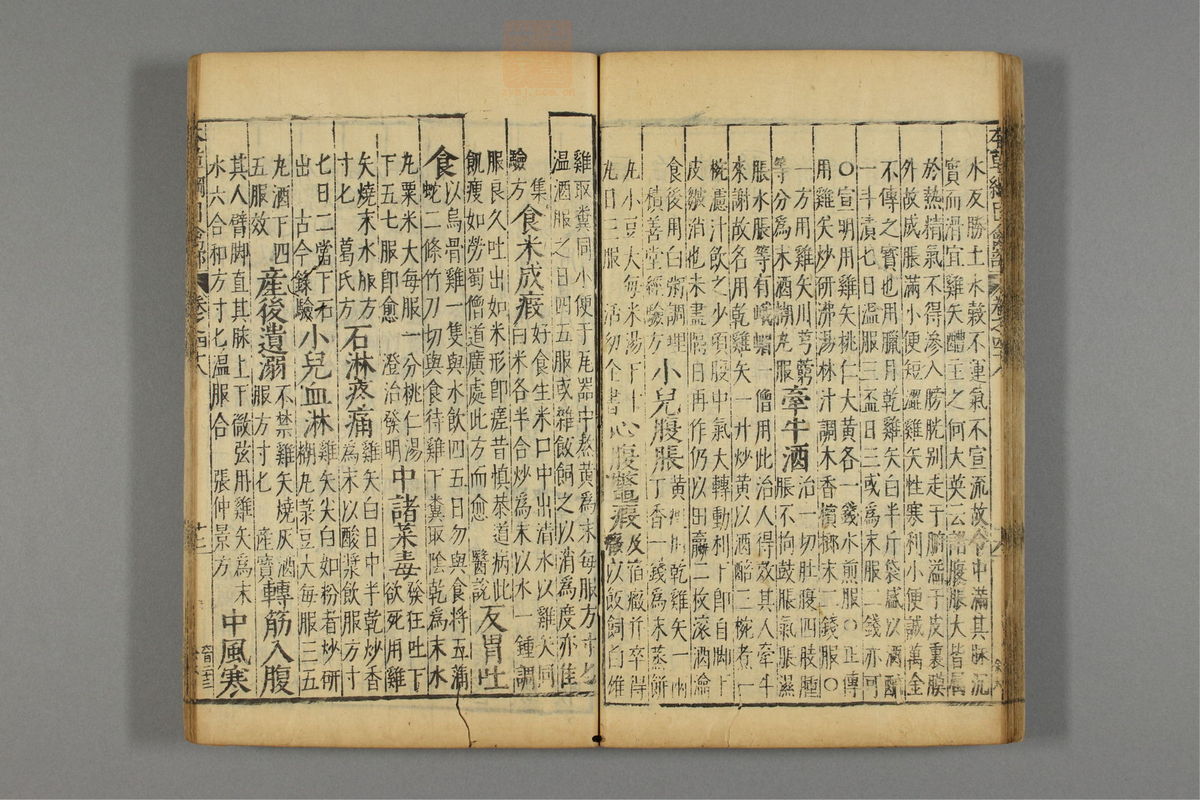 水反勝土水穀不運氣不宣流故令中滿其脉沉
實而滑宜雞矢醴主之何大英云諸腹脹大皆屬
於熱精氣不得滲入膀胱别走于腑溢于皮裏膜
外故成脹滿小便短澀雞矢性寒利小便誠萬金
不傳之寶也用臘月乾雞矢白半斤袋盛以酒醅
一斗漬七日温服三盃日三或為末服二錢亦可
〇宣明用雞矢桃仁大黄各一錢水煎服〇正傳
用雞矢炒研沸湯淋汁調木香檳榔末二錢服〇
一方用雞矢川芎藭
等分為末酒糊丸服
牽牛酒
治一切肚腹四肢腫
脹不拘鼓脹氣脹濕
脹水脹等有峨嵋一僧用此治人得效其人牽牛
來謝故名用乾雞矢一升炒黄以酒醅三椀煮一
椀濾汁飲之少頃腹中氣大轉動利下即自脚下
皮皺消也未盡隔日再作仍以田蠃二枚滚酒瀹
食後用白粥調理
積善堂經驗方
小兒腹脹
黄 乾雞矢一兩
丁香一錢為末蒸餅
丸小豆大每米湯下十
丸日三服 活幼全書
心腹鱉瘕
及宿癥并卒得
癥以飯飼白雄
雞取糞同小便于瓦器中熬黄為末每服方寸匕
温酒服之日四五服或雜飯飼之以消為度亦佳
集
驗方
食米成瘕
好食生米口中出清水以雞矢同
白米各半合炒為末以水一鍾調
服良久吐出如米形即瘥昔慎恭道病此
飢瘦如勞蜀僧道廣處此方而愈 醫説
反胃吐
食
以烏骨雞一隻與水飲四五日勿與食將五蒲
蛇二條竹刀切與食待雞下糞取陰乾為末水
丸粟米大每服一分桃仁湯
下五七服即愈 證治發明
中諸菜毒
發狂吐下
欲死用雞
矢燒末水服方
寸匕 葛氏方
石淋疼痛
雞矢白日中半乾炒香
為末以酸漿飲服方寸
七日二當下石
出 古今錄驗
小兒血淋
雞矢尖白如粉者炒研
糊丸菉豆大每服三五
丸酒下四
五服效
產後遺溺
不禁雞矢燒灰酒
服方寸匕 產寶
轉筋入腹
其人臂脚直其脉上下微弦用雞矢為末
水六合和方寸匕温服合 張仲景方
中風寒